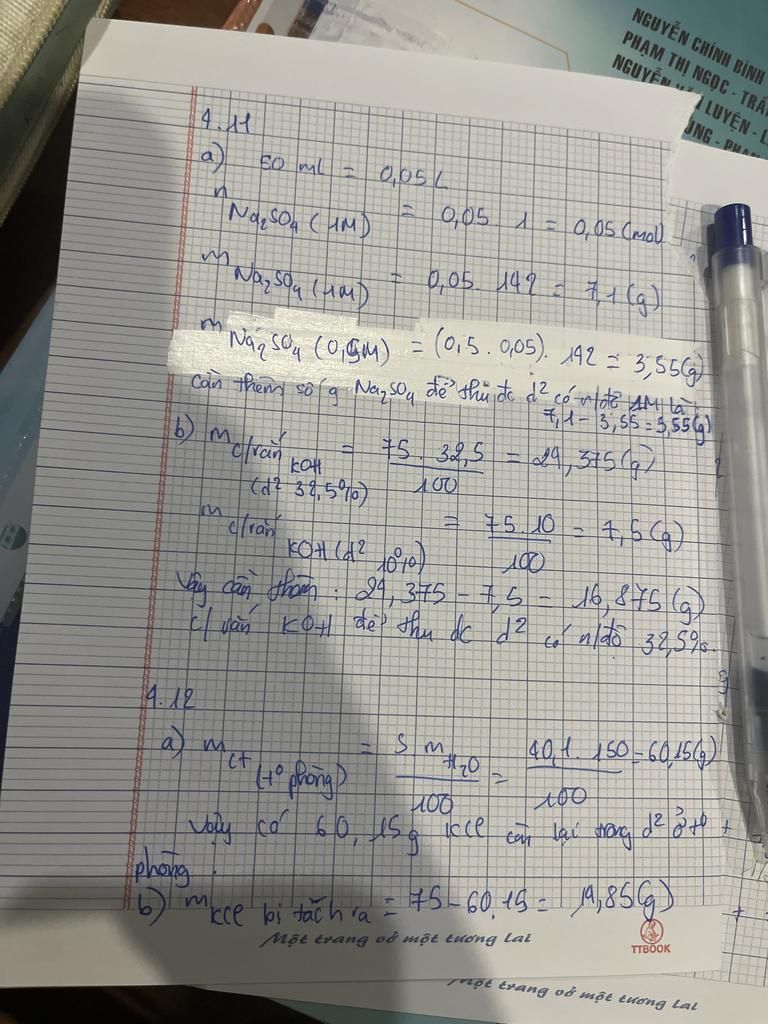 NGUYỄN CHÍNH BÌNH
PHẠM THỊ NGỌC - TRẦ
NGUYỄN VĂN LUYỆN - L
NG - PHAN
4.11
a) 50 ml = 0,05L
n Na₂SO₄ (1M) = 0,05 . 1 = 0,05 (mol)
m Na₂SO₄ (1M) = 0,05 . 142 = 7,1 (g)
m Na₂SO₄ (0,5M) = (0,5 . 0,05) . 142 = 3,55 (g)
cần thêm số g Na₂SO₄ để thu đc d² có n/độ 1M là:
7,1 - 3,55 = 3,55 (g)
b) m c/rắn KOH (d² 32,5%) = 75 . 32,5 / 100 = 24,375 (g)
m c/rắn KOH (d² 10%) = 75 . 10 / 100 = 7,5 (g)
Vậy cần thêm : 24,375 - 7,5 = 16,875 (g)
c/rắn KOH để thu đc d² có n/độ 32,5%.
4.12
a) m ct (t° phòng) = S m H₂O / 100 = 40,1 . 150 / 100 = 60,15 (g)
Vậy có 60,15g KCl còn lại trong d² ở t°
phòng.
b) m KCl bị tách ra = 75 - 60,15 = 14,85 (g)
Một trang vở một tương lai
TTBOOK
Một trang vở một tương lai